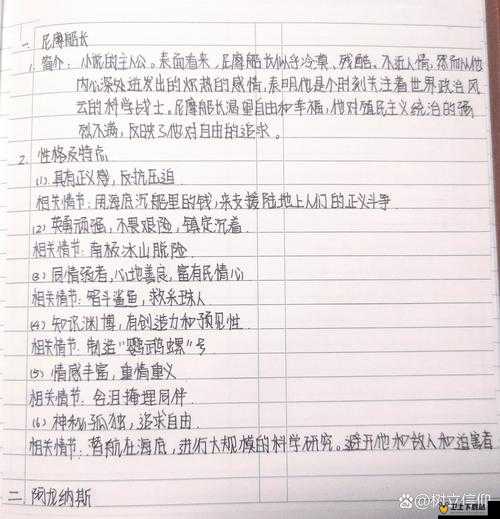 一 尼摩船长
1. 简介: 小说的主人公。表面看来,尼摩船长似乎冷漠、残酷、不近人情,然而从他
内心深处迸发出的炽热的感情,表明他是个时刻关注着世界政治风
云的科学战士。尼摩船长渴望自由和幸福,他对殖民主义统治的强
烈不满,反映了他对自由的追求。
2. 性格及特点
(1) 具有正义感,反抗压迫
相关情节: 用海底沉船里的钱,来支援陆地上人们的正义斗争
(2) 英勇顽强,不畏艰险,镇定沉着
相关情节: 南极冰山脱险
(3) 同情弱者,心地善良,富有民情心
相关情节: 智斗鲨鱼,救采珠人
(4) 知识渊博,有创造力和预见性
相关情节: 制造“鹦鹉螺”号
(5) 情感丰富,重情重义
相关情节: 含泪掩埋同伴
(6) 神秘孤独,追求自由
相关情节: 潜航在海底,进行大规模的科学研究。避开他和敌人和迫害者
二 阿龙纳斯
百家号@树立信仰
卫士下载站